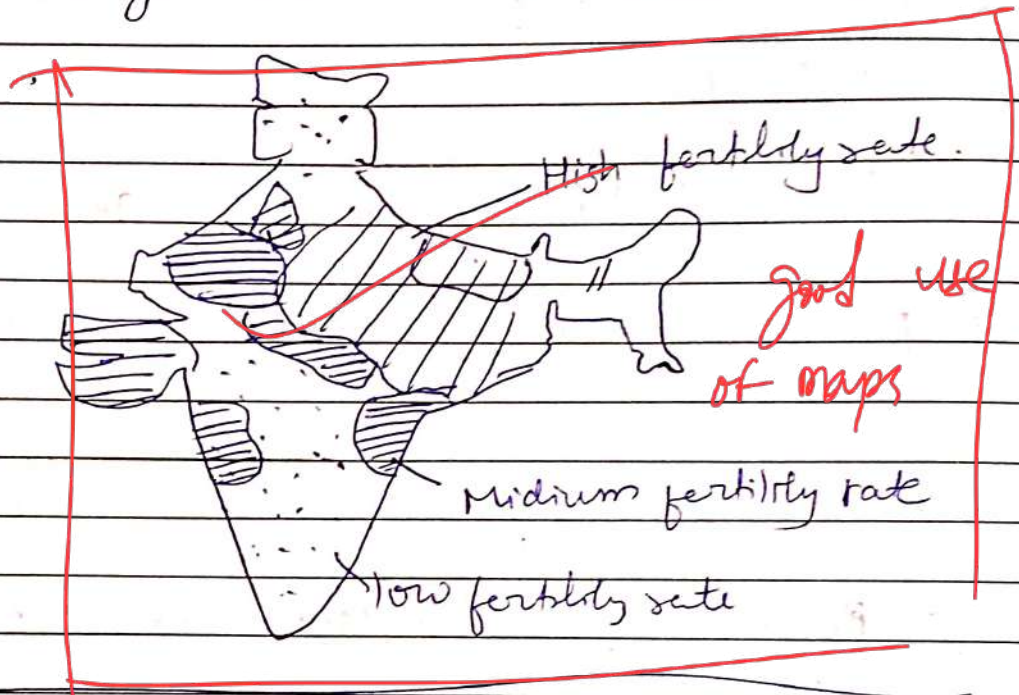 High fertility rate.
good use
of maps
Midium fertility rate
low fertility rate